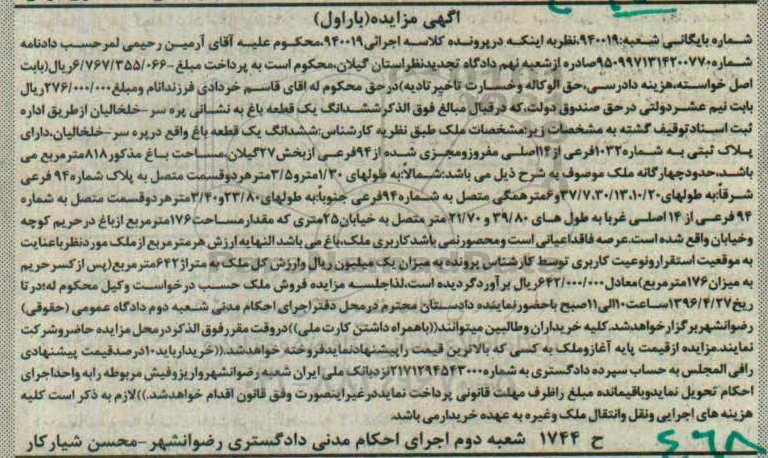 آگهی مزایده(باراول)
شماره بایگانی شعبه:940019،نظربه اینکه درپرونده کلاسه اجرائی940019،محکوم علیه آقای آرمین رحیمی لمرحسب دادنامه
شماره9509971314200770صادره ازشعبه نهم دادگاه تجدیدنظراستان گیلان،محکوم است به پرداخت مبلغ-6/767/355/066ریال(بابت
اصل خواسته،هزینه دادرسی،حق الوکاله وخسارت تاخیرتادیه)درحق محکوم له اقای قاسم خردادی فرزندانام ومبلغ276/000/000ریال
بابت نیم عشردولتی درحق صندوق دولت،که درقبال مبالغ فوق الذکرششدانگ یک قطعه باغ به نشانی پره سر-خلخالیان ازطریق اداره
ثبت اسنادتوقیف گشته به مشخصات زیر:مشخصات ملک طبق نظریه کارشناس:ششدانگ یک قطعه باغ واقع درپره سر-خلخالیان،دارای
پلاک ثبتی به شماره1032فرعی از14اصلی مفروزومجزی شده از94فرعی ازبخش27گیلان،مساحت باغ مذکور818مترمربع می
باشد،حدودچهارگانه ملک موصوف به شرح ذیل می باشد:شمالا:به طولهای 1/30مترو3/5مترهردوقسمت متصل به پلاک شماره94 فرعی
شرقاً:به طولهای37/7،30/13،10/20و6مترهمگی متصل به شماره94فرعی جنوباً:به طولهای23/80و3/40مترهردوقسمت متصل به شماره
94 فرعی از 14 اصلی غربا به طول های 39/80 و 21/70 متر متصل به خیابان25متری که مقدارمساحت176مترمربع ازباغ درحریم کوچه
وخیابان واقع شده است.عرصه فاقداعیانی است ومحصورنمی باشدکاربری ملک،باغ می باشد النهایه ارزش هرمترمربع ازملک موردنظرباعنایت
به موقعیت استقرارونوعیت کاربری توسط کارشناس پرونده به میزان یک میلیون ریال وارزش کل ملک به متراژ642مترمربع(پس ازکسرحریم
به میزان176مترمربع)معادل642/000/000ریال برآوردگردیده است،لذاجلسه مزایده فروش ملک حسب درخواست وکیل محکوم له؛درتا
ریخ1396/4/27ساعت10الی11صبح باحضورنماینده دادستان محترم درمحل دفتراجرای احکام مدنی شعبه دوم دادگاه عمومی (حقوقی)
رضوانشهربرگزارخواهدشد.کلیه خریداران وطالبین میتوانند((باهمراه داشتن کارت ملی))دروقت مقررفوق الذکردرمحل مزایده حاضروشرکت
نمایند.مزایده ازقیمت پایه آغازوملک به کسی که بالاترین قیمت راپیشنهادنمایدفروخته خواهدشد.((خریدارباید10درصدقیمت پیشنهادی
رافی المجلس به حساب سپرده دادگستری به شماره2171294543000نزدبانک ملی ایران شعبه رضوانشهرواریزوفیش مربوطه رابه واحداجرای
احکام تحویل نمایدوباقیمانده مبلغ راظرف مهلت قانونی پرداخت نمایددرغیراینصورت وفق قانون اقدام خواهدشد.))لازم به ذکر است کلیه
هزینه های اجرایی ونقل وانتقال ملک وغیره به عهده خریدارمی باشد.
ح 1744 شعبه دوم اجرای احکام مدنی دادگستری رضوانشهر-محسن شیارکار